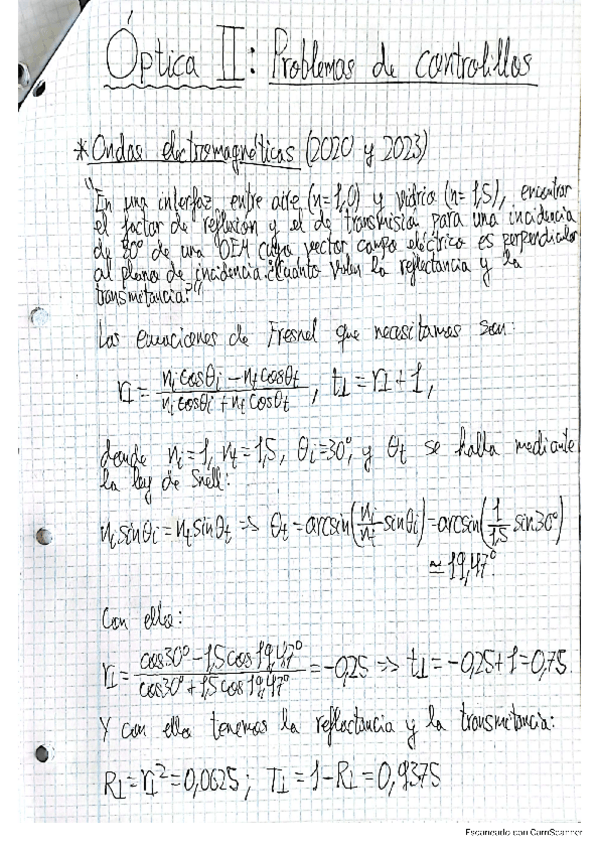 Óptica II: Problemas de controlillos
*Ondas electromagnéticas (2020 y 2023)
"En una interfaz entre aire (n=1,0) y vidrio (n=1,5), encontrar
el factor de reflexión y el de transmisión para una incidencia
de 30° de una OEM cuyo vector campo eléctrico es perpendicular
al plano de incidencia. ¿Cuánto valen la reflectancia y la
transmitancia?"
Las ecuaciones de Fresnel que necesitamos son:
r⊥ = (n_i cosθ_i − n_t cosθ_t)/(n_i cosθ_i + n_t cosθ_t), t⊥ = r⊥ + 1,
donde n_i=1, n_t=1,5, θ_i=30°, y θ_t se halla mediante
la ley de Snell:
n_i sinθ_i = n_t sinθ_t => θ_t = arcsin(n_i/n_t sinθ_i) = arcsin(1/1,5 sin30°)
≃ 19,47°
Con ello:
r⊥ = (cos30° − 1,5cos19,47°)/(cos30° + 1,5cos19,47°) = −0,25 => t⊥ = −0,25+1 = 0,75.
Y con ello tenemos la reflectancia y la transmitancia:
R⊥ = r⊥² = 0,0625; T⊥ = 1−R⊥ = 0,9375
Escaneado con CamScanner